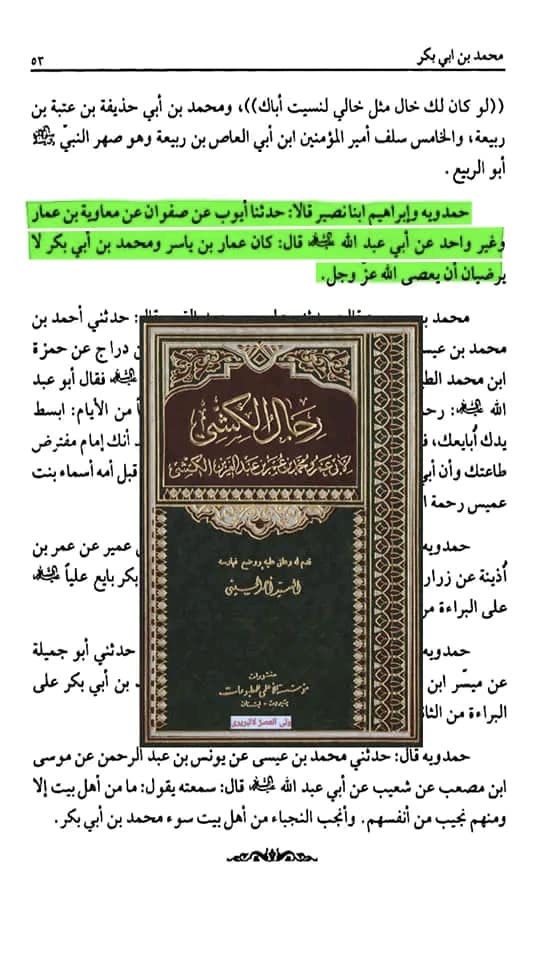 محمد بن ابي بكر
٥٣
((لو كان لك خال مثل خالي لنسيت أباك))، ومحمد بن أبي حذيفة بن عتبة بن
ربيعة، والخامس سلف أمير المؤمنين ابن أبي العاص بن ربيعة وهو صهر النبيّ ﷺ
أبو الربيع.
حمدويه وإبراهيم ابنا نصير قالا: حدثنا أيوب عن صفوان عن معاوية بن عمار
وغير واحد عن أبي عبد الله عليه السلام قال: كان عمار بن ياسر ومحمد بن أبي بكر لا
يرضيان أن يعصى الله عزّ وجل.
محمد حدثني أحمد بن
محمد بن دراج عن حمزة
ابن محمد فقال أبو عبد
الله عليه السلام: من الأيام: ابسط
يدك أبايعك، أنك إمام مفترض
طاعتك وأن قبل أمه أسماء بنت
عميس رحمة
حمدويه عمير عن عمر بن
أذينة عن بكر بايع علياً عليه السلام
على البراءة
حمدويه حدثني أبو جميلة
عن ميسّر ابن بن أبي بكر على
البراءة من
رجال الكشي
لأبي عمرو محمد بن عمر بن عبد العزيز الكشي
قدم له وعلق عليه ووضع فهارسه
السيد أحمد الحسيني
منشورات
مؤسسة الأعلمي للمطبوعات
بيروت - لبنان
ولي العصر لائبريري
حمدويه قال: حدثني محمد بن عيسى عن يونس بن عبد الرحمن عن موسى
ابن مصعب عن شعيب عن أبي عبد الله عليه السلام قال: سمعته يقول: ما من أهل بيت إلا
ومنهم نجيب من أنفسهم. وأنجب النجباء من أهل بيت سوء محمد بن أبي بكر.